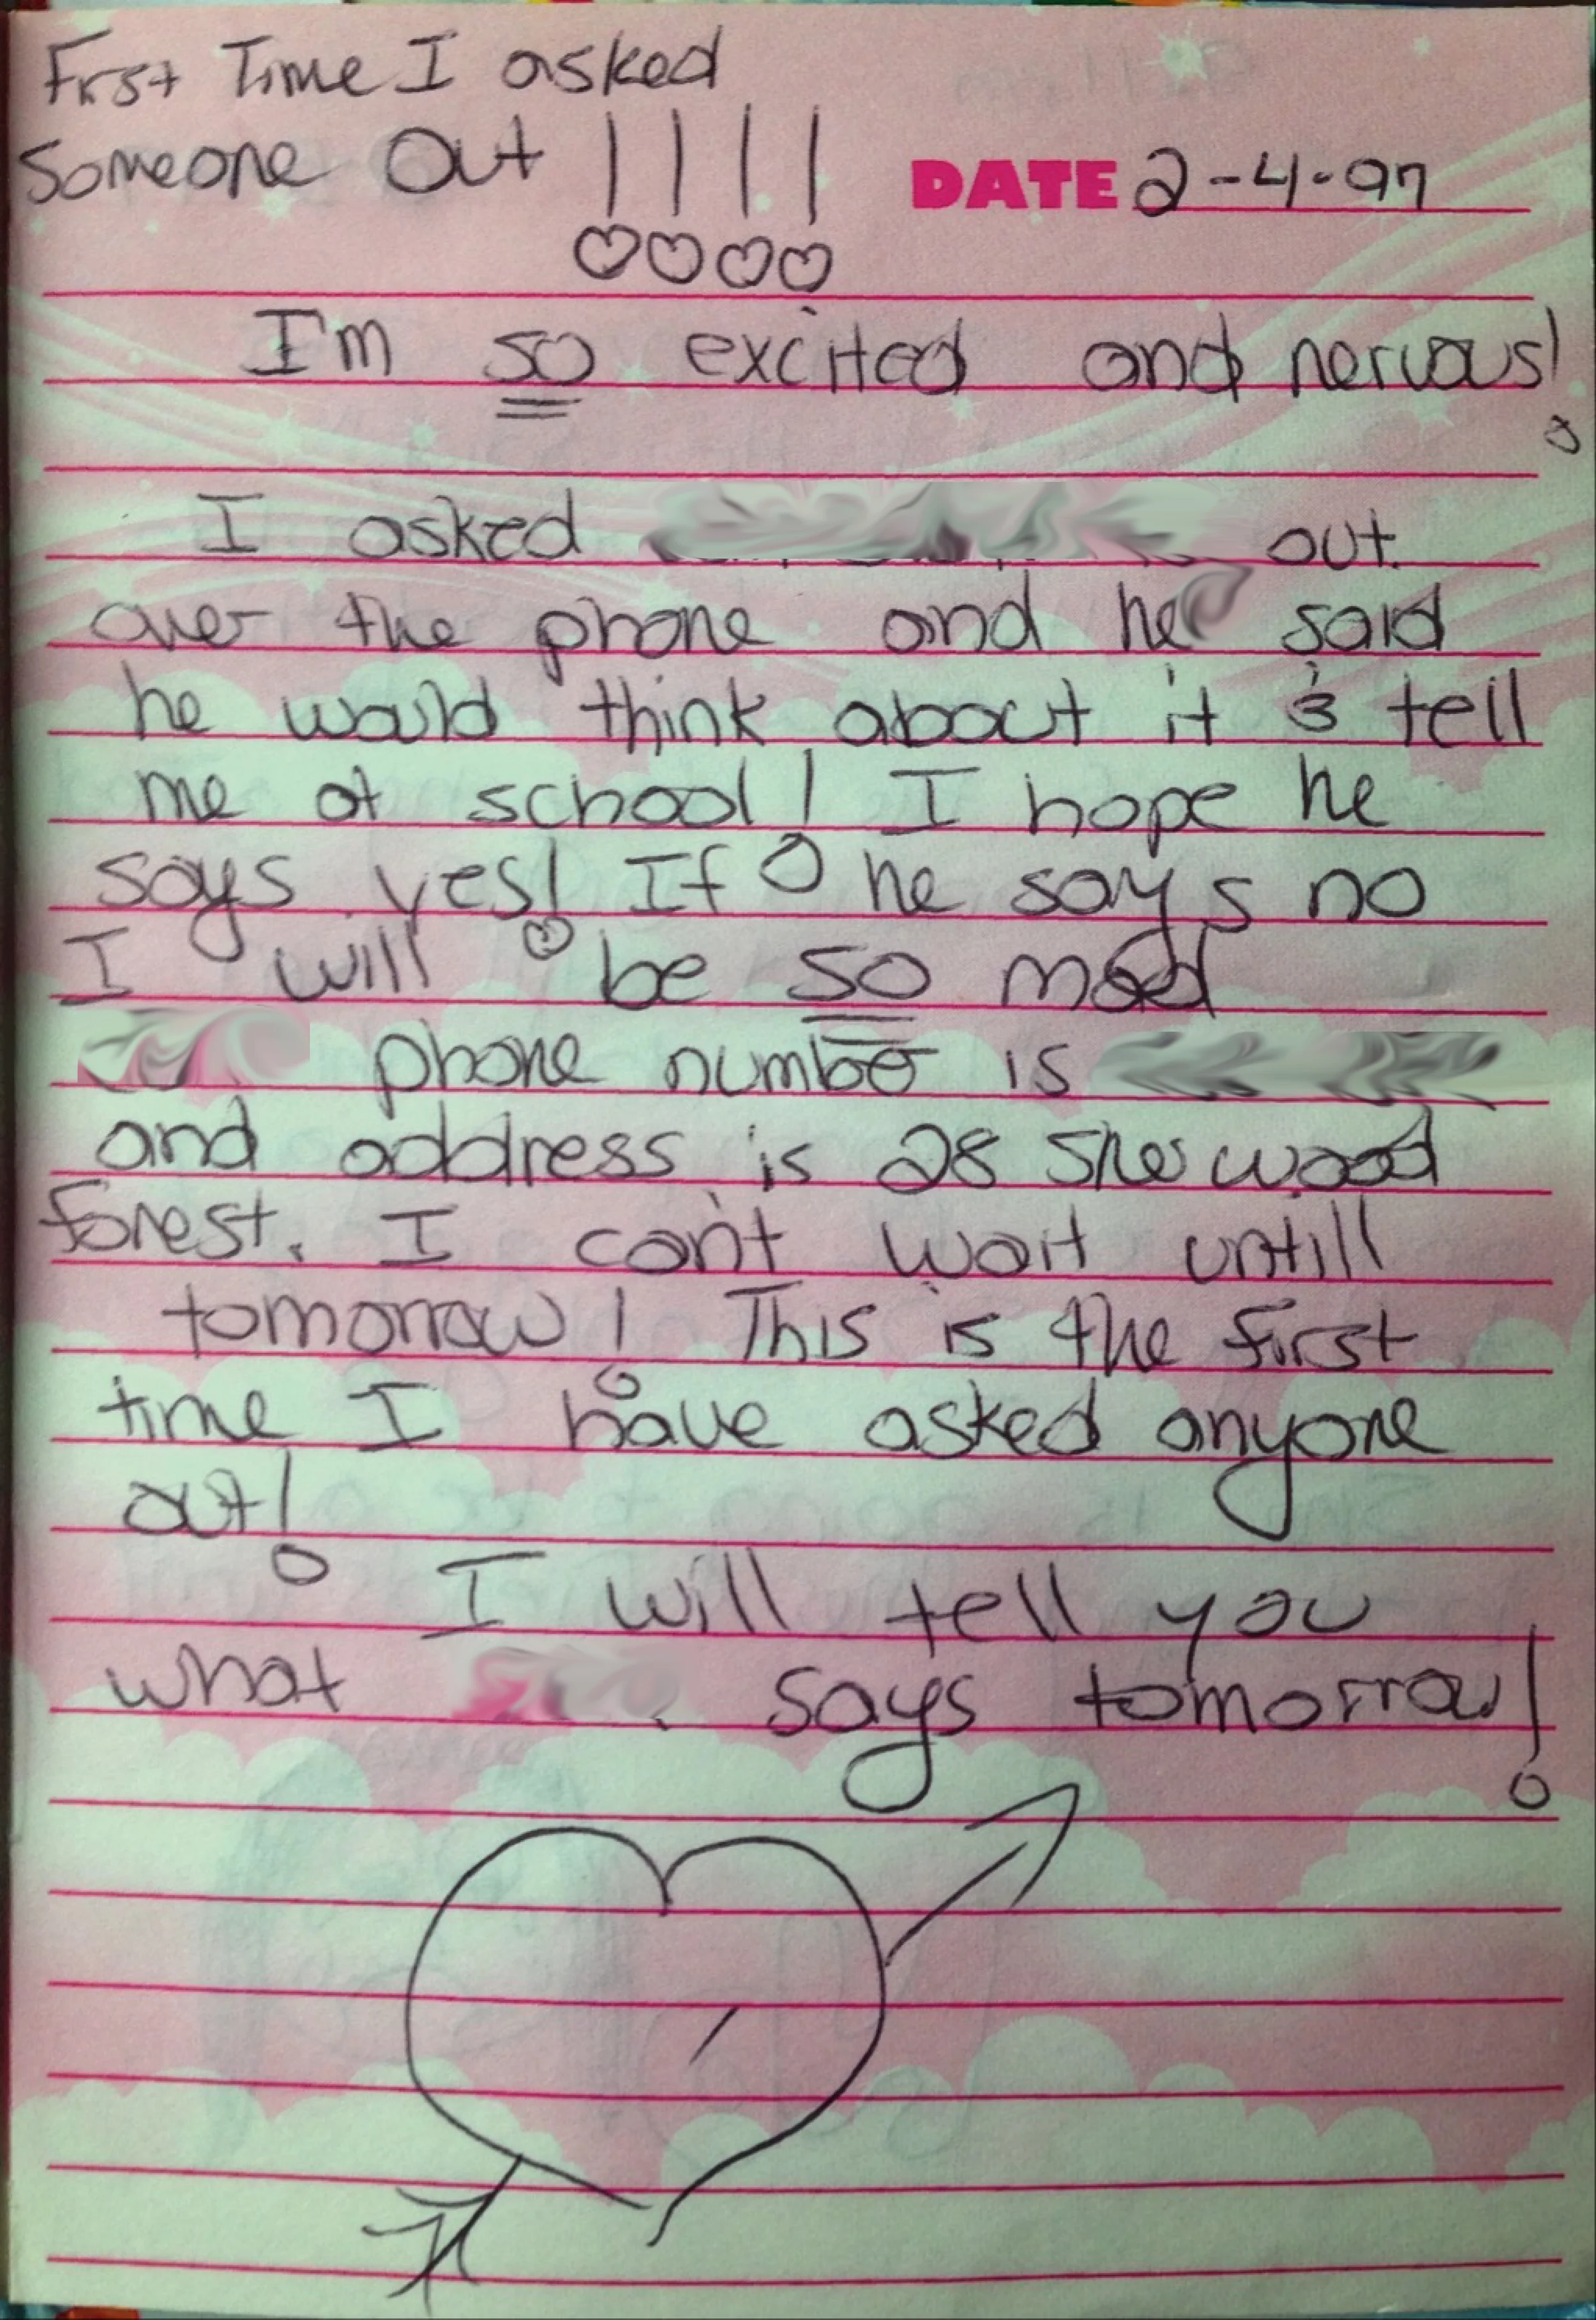 First Time I asked
Someone Out !!!!
DATE 2-4-97
I'm so excited and nervous!
I asked out
over the phone and he said
he would think about it & tell
me at school! I hope he
says yes! If he says no
I will be so mad
phone number is
and address is 28 Sherwood
Forest. I can't wait untill
tomorrow! This is the first
time I have asked anyone
out!
I will tell you
what says tomorrow!